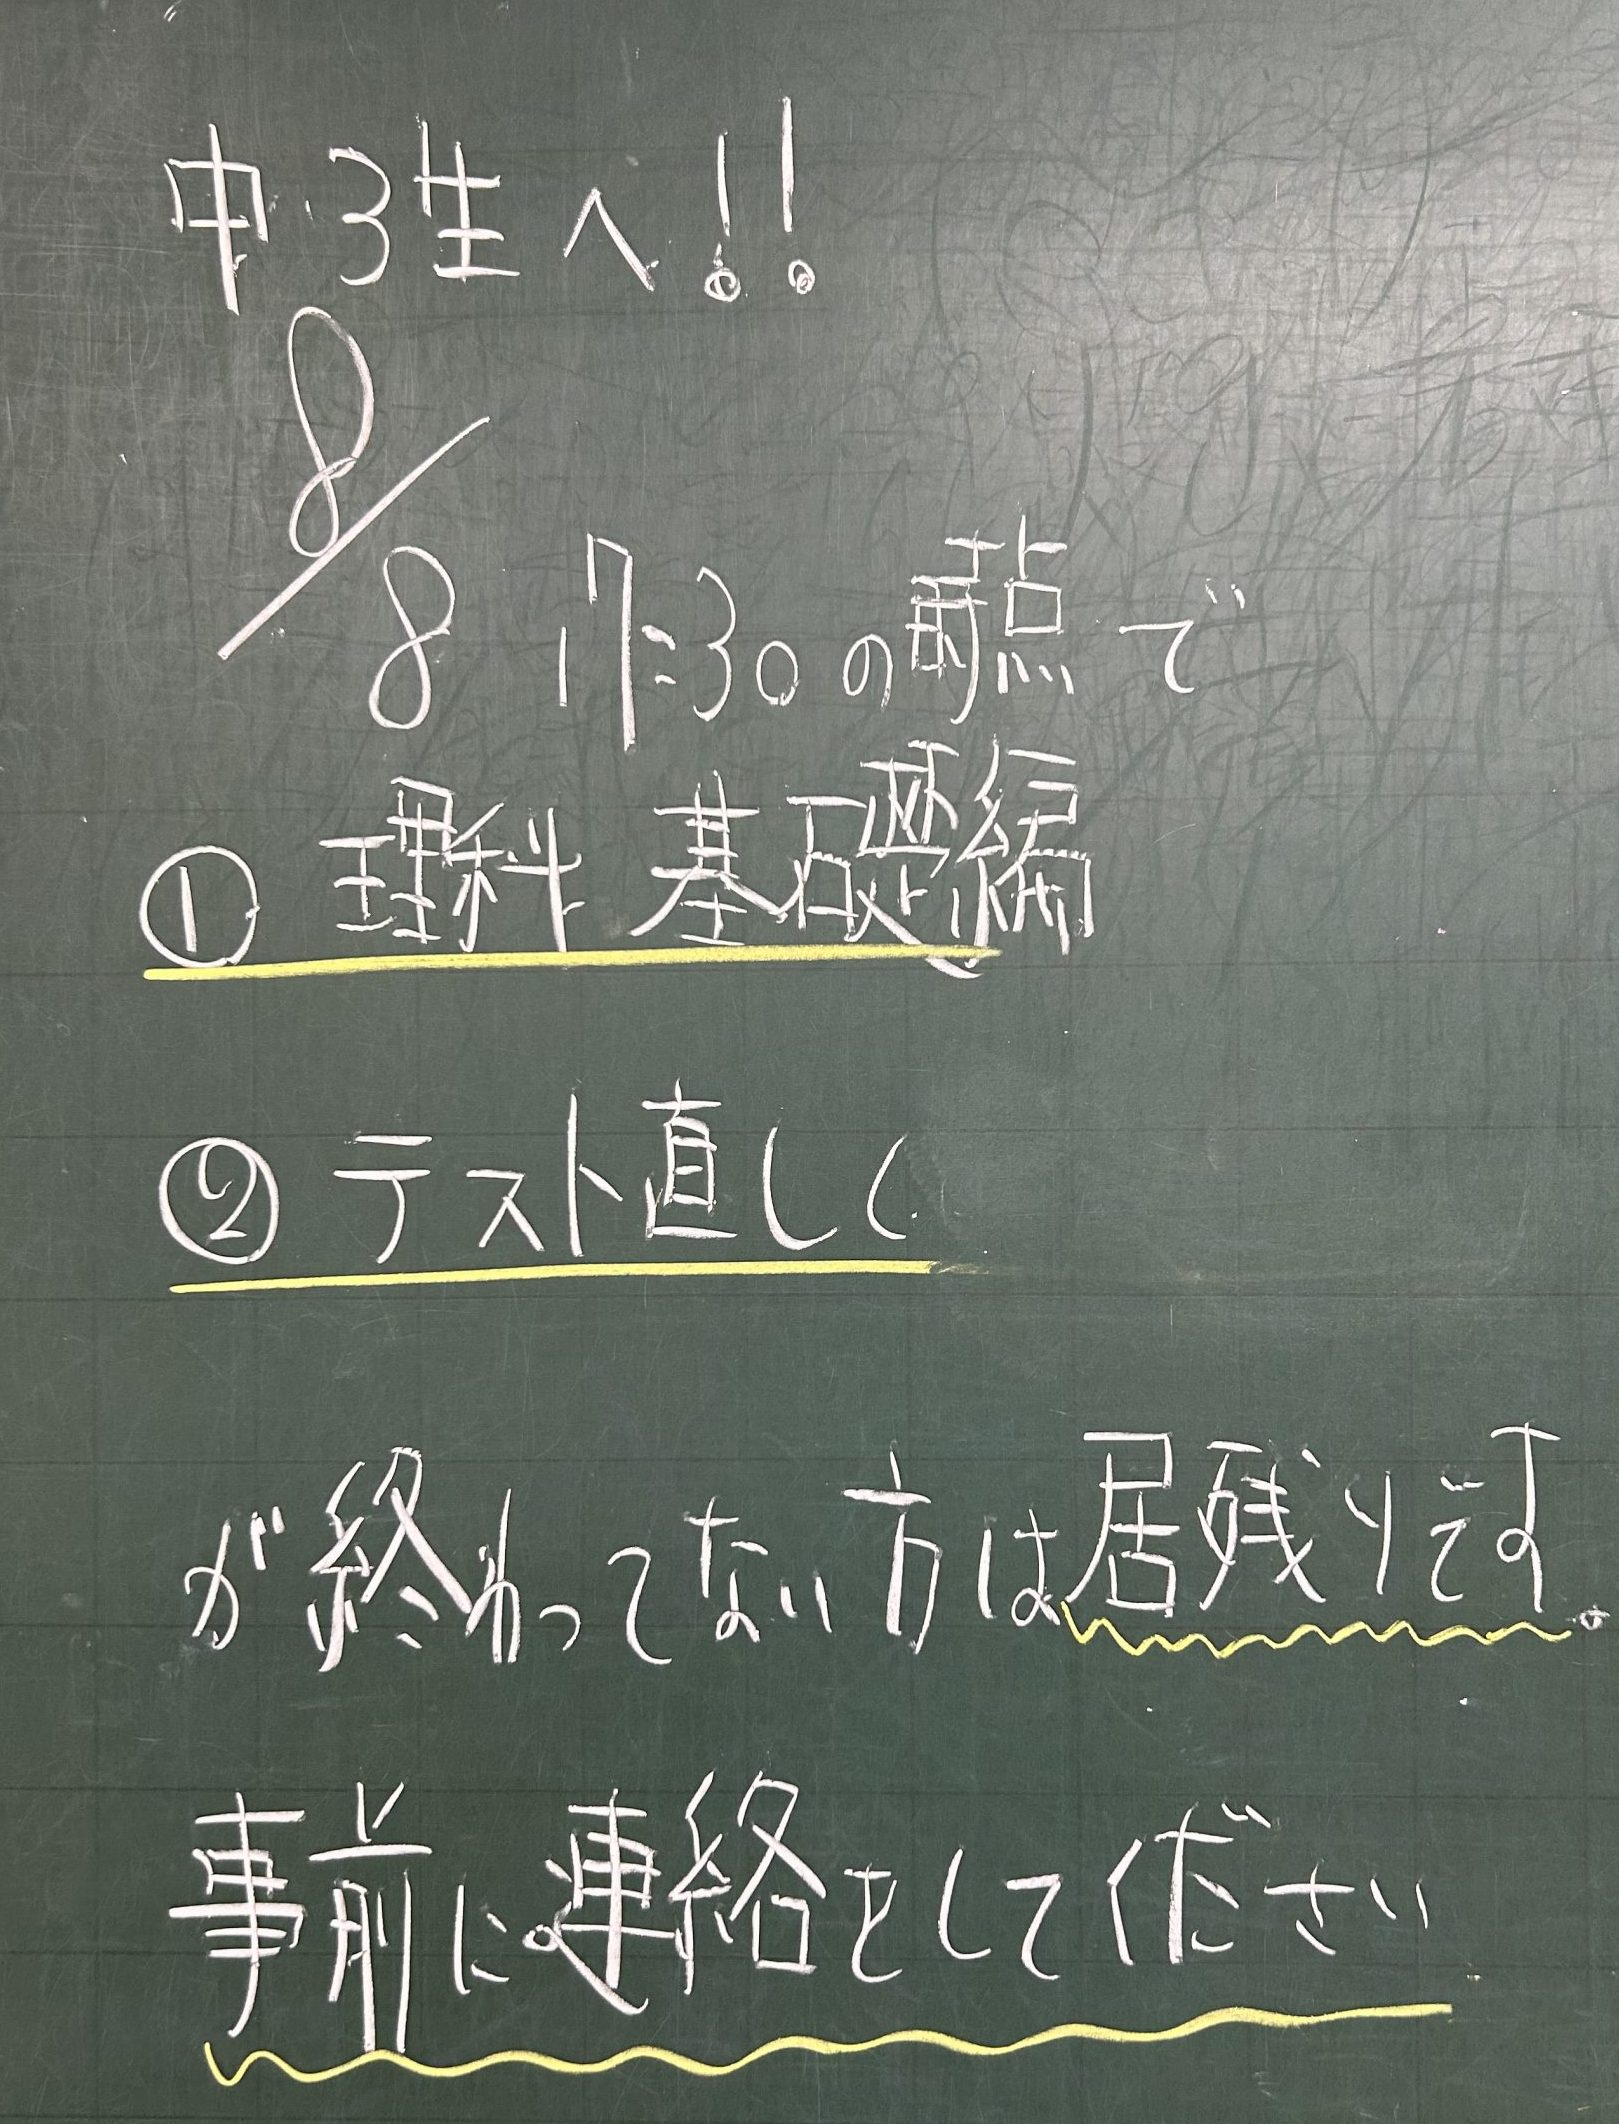 中3生へ!!
8/8 17:30の時点で
① 理科 基礎編
② テスト直し
が終わってない方は居残りです。
事前に連絡をしてください